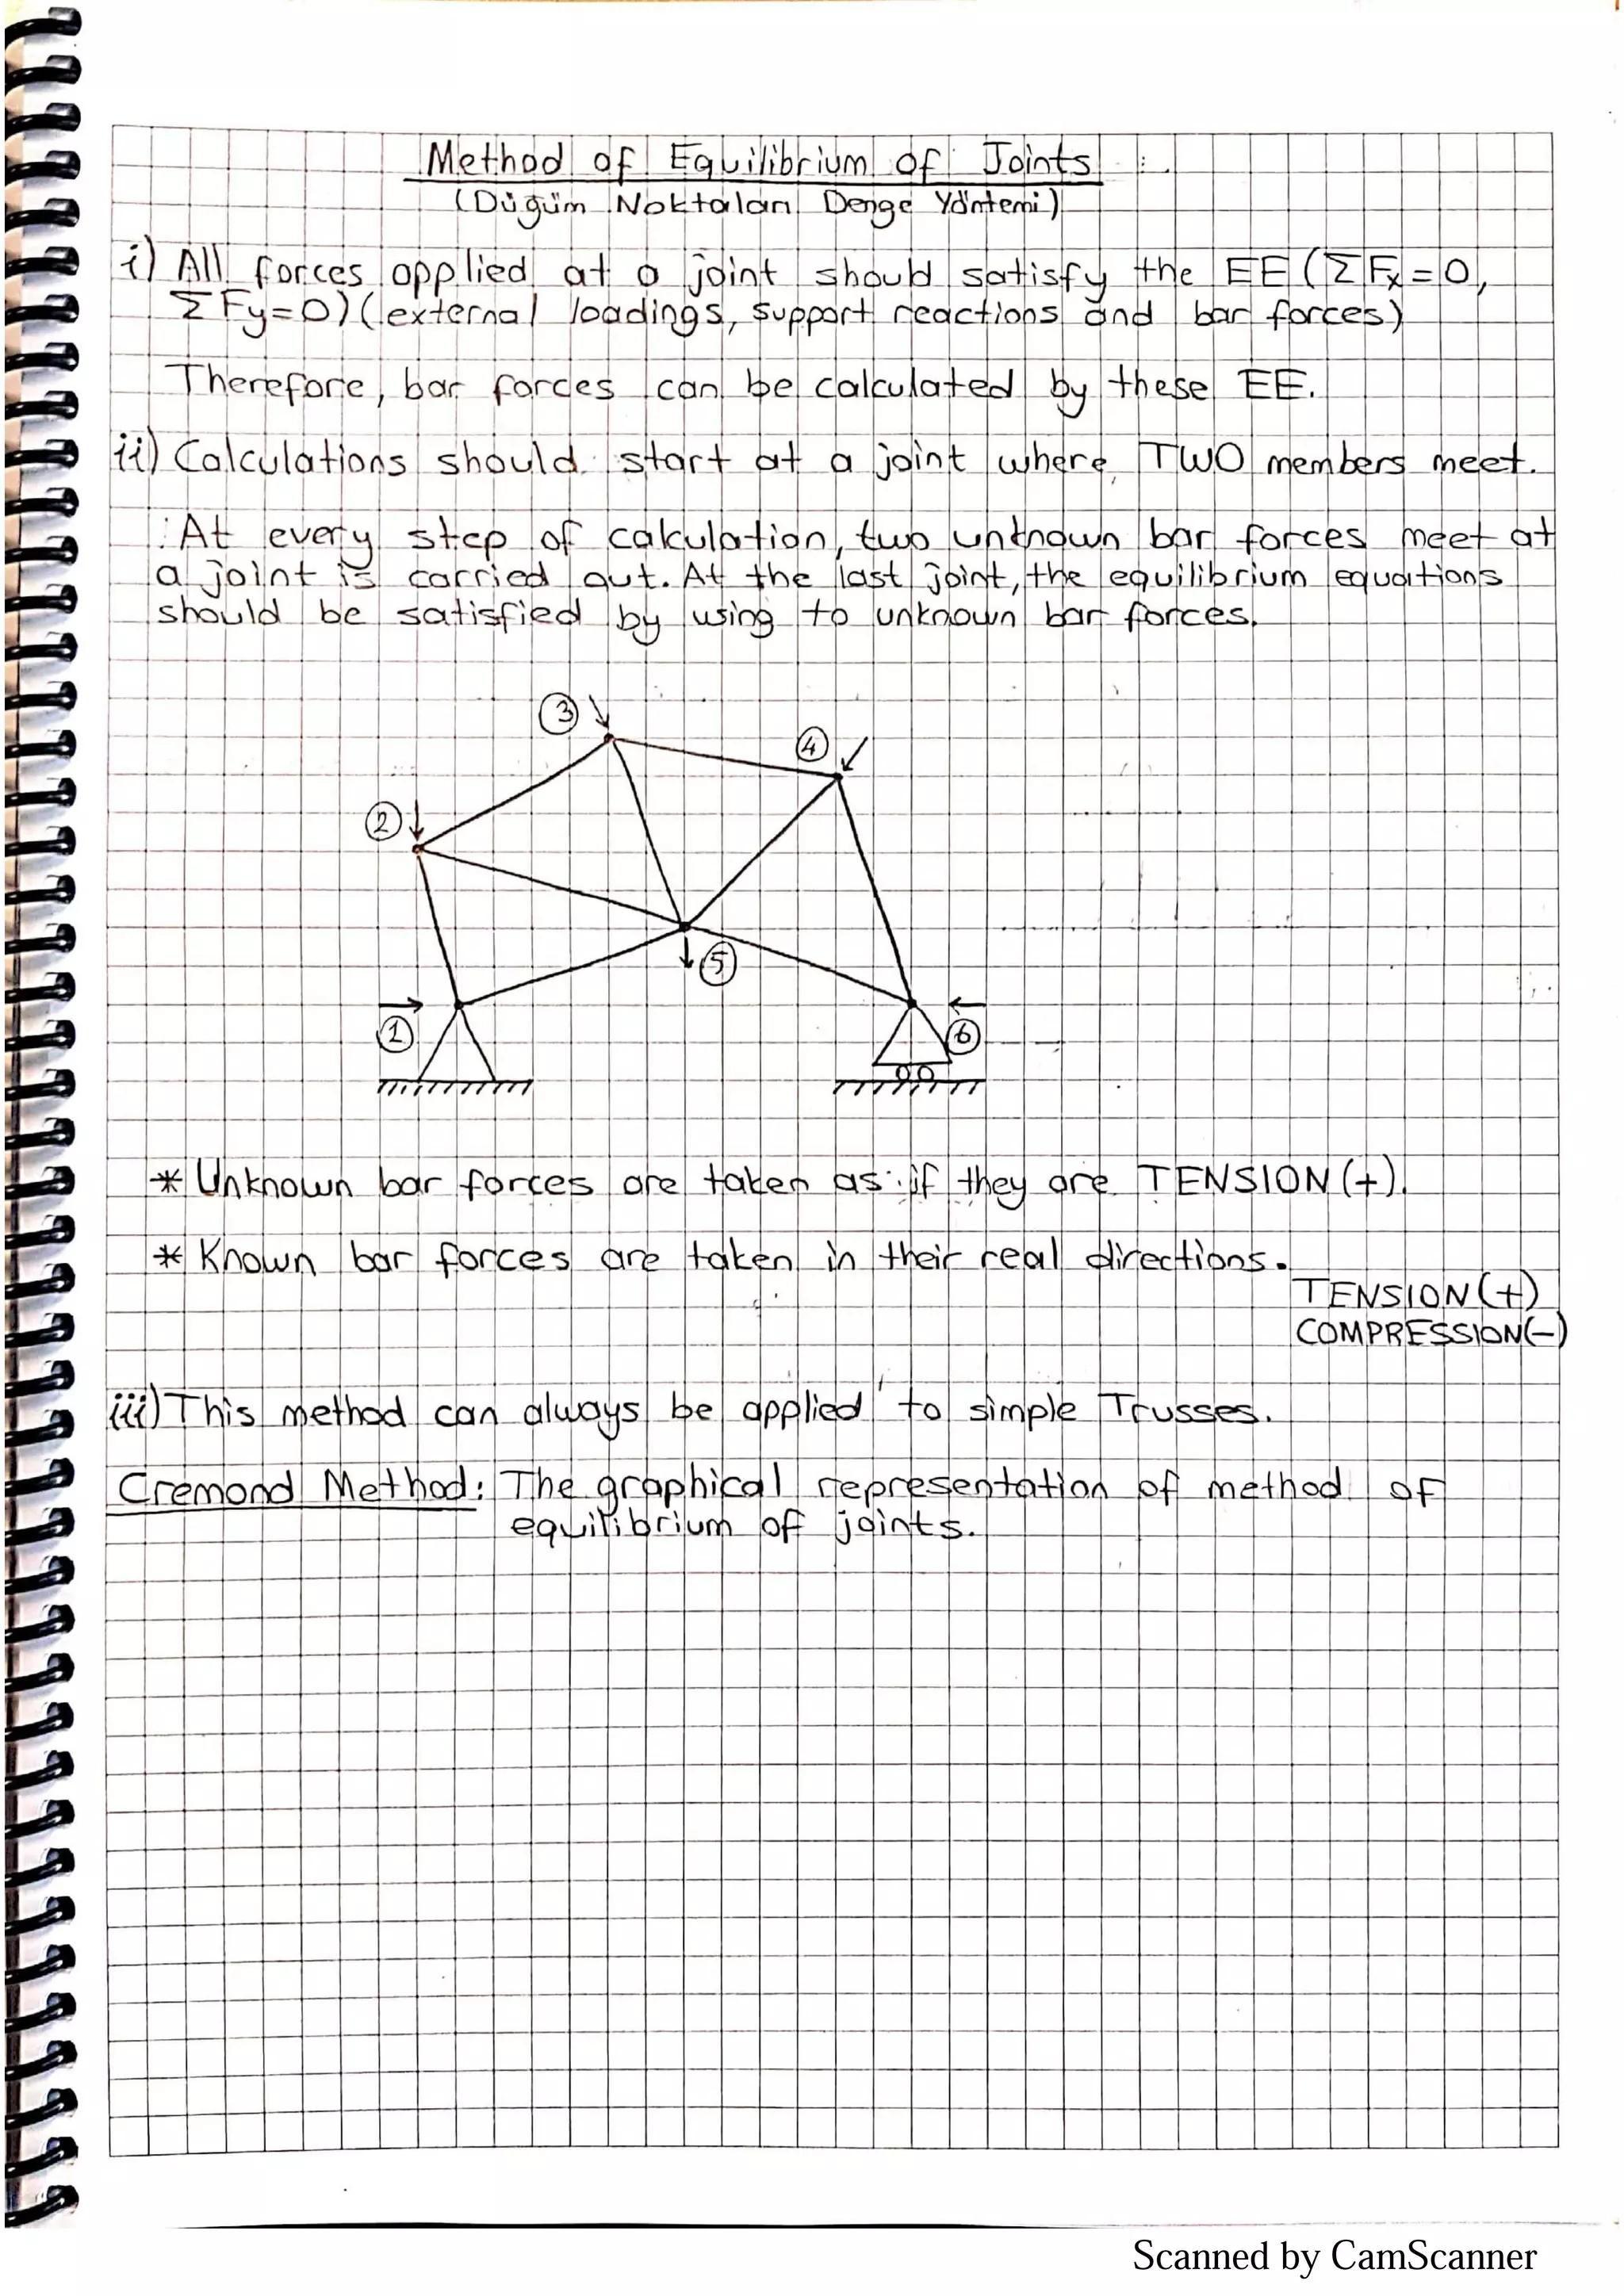 Method of Equilibrium of Joints :
(Düğüm Noktaları Denge Yöntemi)
i) All forces applied at a joint should satisfy the EE (ΣFx=0,
ΣFy=0) (external loadings, support reactions and bar forces)
Therefore, bar forces can be calculated by these EE.
ii) Calculations should start at a joint where TWO members meet.
At every step of calculation, two unknown bar forces meet at
a joint is carried out. At the last joint, the equilibrium equations
should be satisfied by using to unknown bar forces.
3
4
2
5
1
6
* Unknown bar forces are taken as if they are TENSION (+).
* Known bar forces are taken in their real directions.
TENSION (+)
COMPRESSION (-)
iii) This method can always be applied to simple Trusses.
Cremond Method: The graphical representation of method of
equilibrium of joints.
Scanned by CamScanner